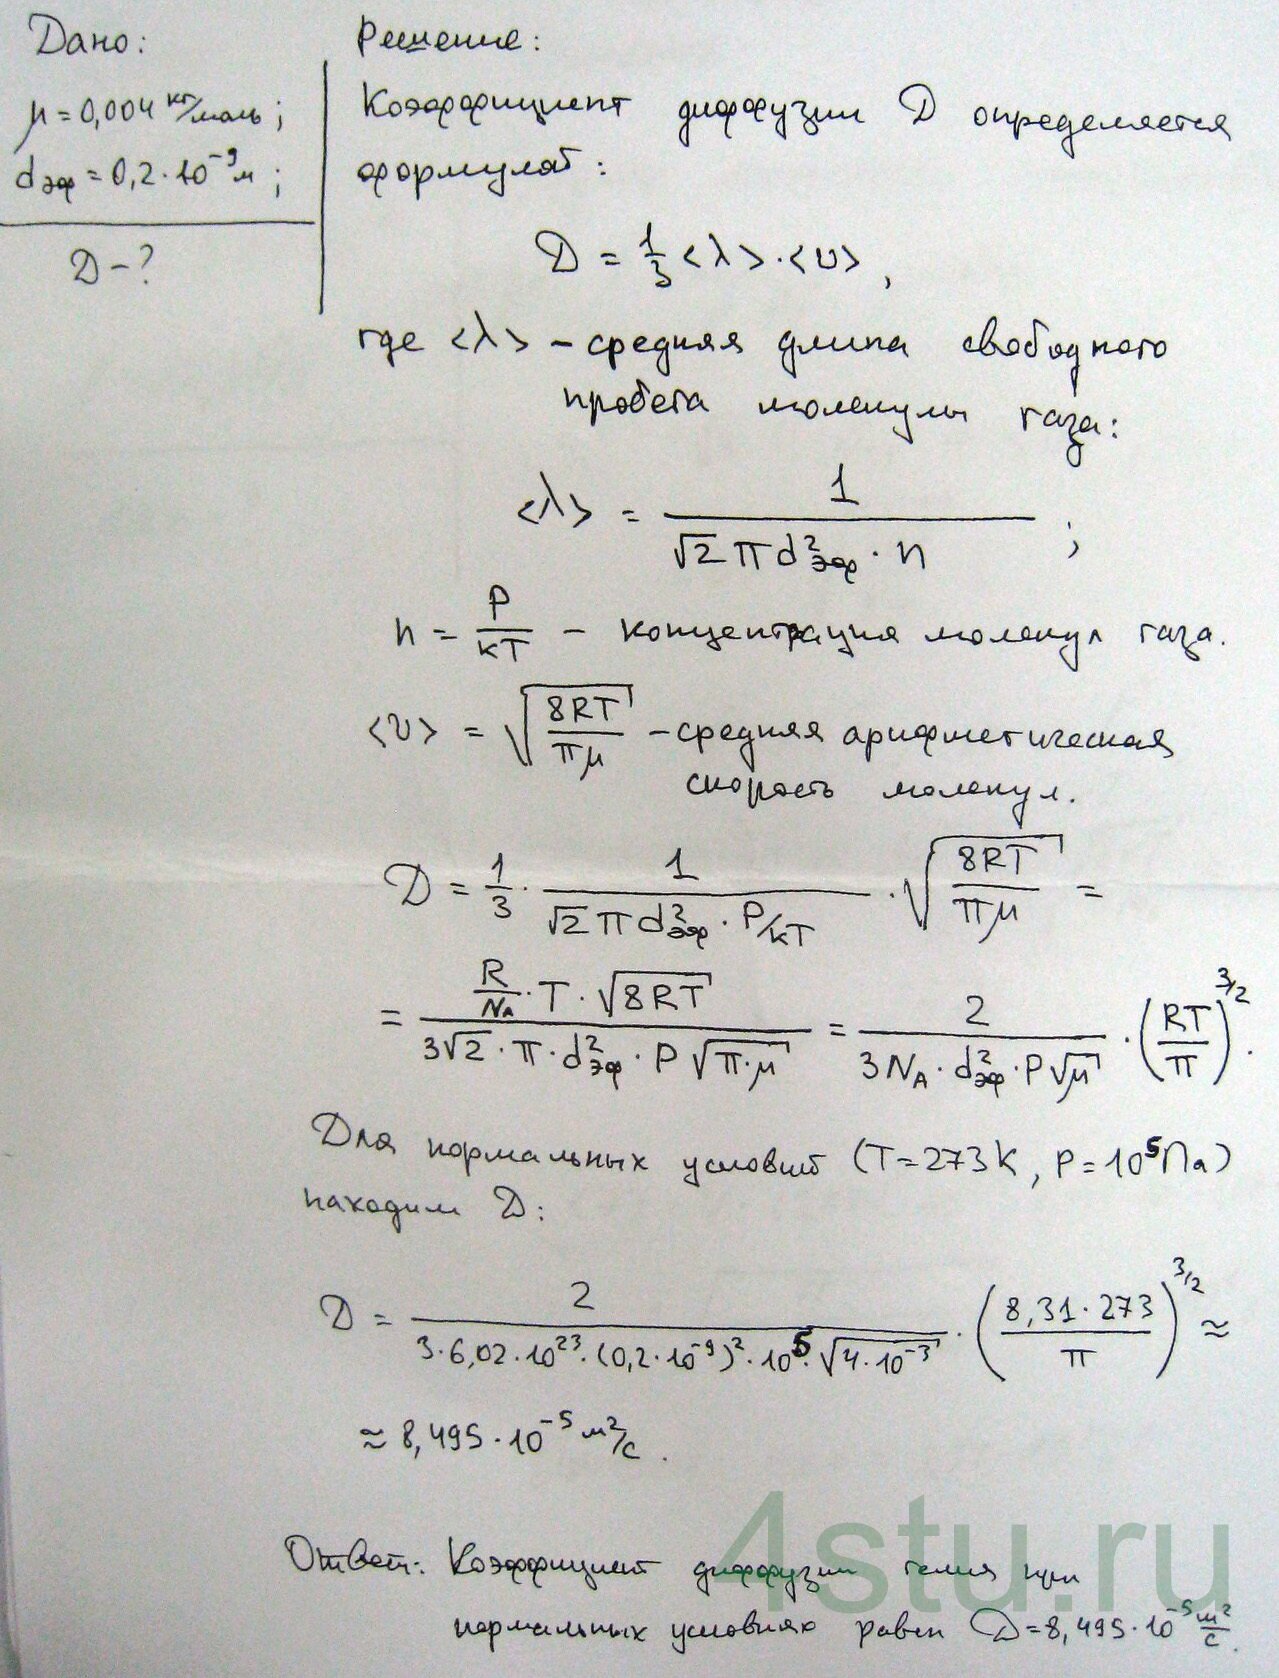 Дано:
μ = 0,004 кг/моль;
dэф = 0,2·10⁻⁹ м;
D – ?
Решение:
Коэффициент диффузии D определяется
формулой:
D = 1/3 <λ>·<υ>,
где <λ> – средняя длина свободного
пробега молекулы газа:
<λ> = 1/(√2 π d²эф · n);
n = P/кT – концентрация молекул газа.
<υ> = √(8RT/πμ) – средняя арифметическая
скорость молекул.
D = 1/3 · 1/(√2 π d²эф · P/кT) · √(8RT/πμ) =
= (R/Nₐ · T · √8RT)/(3√2 · π · d²эф · P √π·μ) = 2/(3Nₐ · d²эф · P√μ) · (RT/π)^3/2.
Для нормальных условий (T = 273К, P = 10⁵Па)
находим D:
D = 2/(3·6,02·10²³·(0,2·10⁻⁹)²·10⁵·√4·10⁻³) · (8,31·273/π)^3/2 ≈
≈ 8,495·10⁻⁵ м²/с.
Ответ: Коэффициент диффузии гелия при
нормальных условиях равен D = 8,495·10⁻⁵ м²/с.
4stu.ru